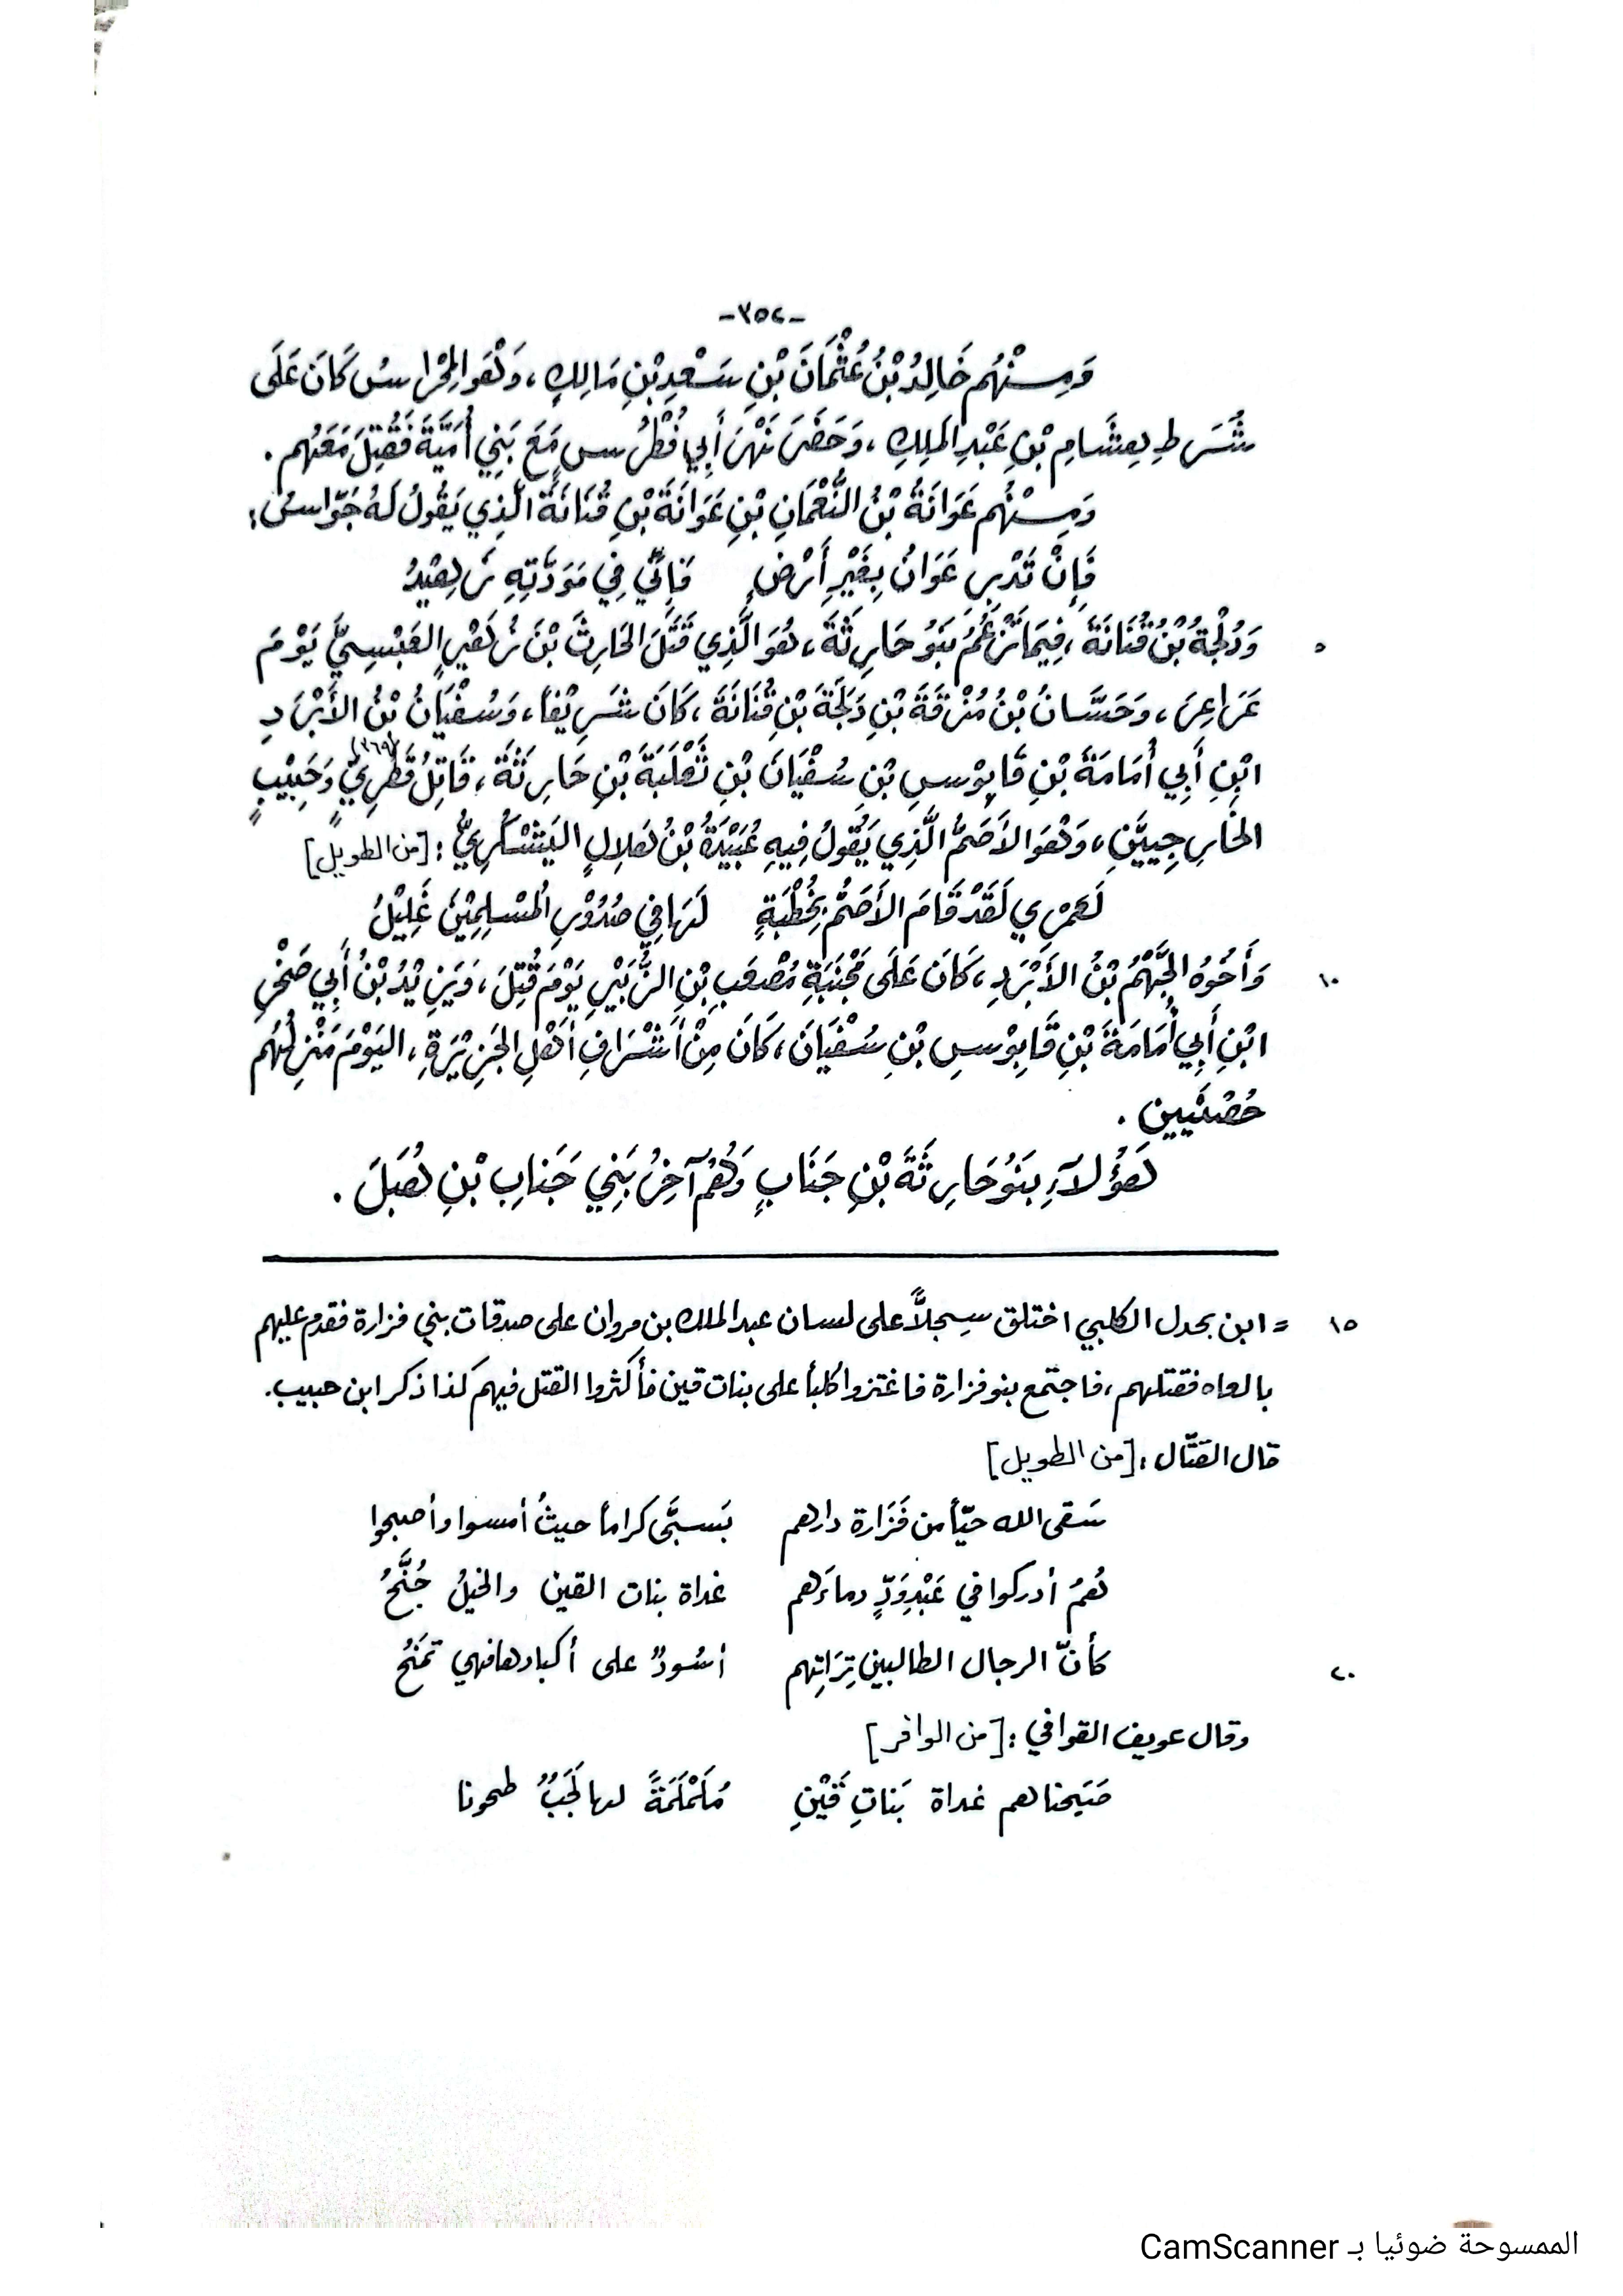 -٣٥٤-
وَمِنْهُم خَالِدُ بْنُ عُثْمَانَ بْنِ سَعْدِ بْنِ مَالِكٍ، وَهْوَ المِخْرَاسُ كَانَ عَلَى
شُرَطِ هِشَامِ بْنِ عَبْدِ المَلِكِ، وَحَضَرَ نَهْرَ أَبِي فُطْرُسٍ مَعَ بَنِي أُمَيَّةَ فَقُتِلَ مَعَهُم.
وَمِنْهُم عَوَانَةُ بْنُ النُّعْمَانِ بْنِ عَوَانَةَ بْنِ قُنَانَةَ الَّذِي يَقُولُ لَهُ جَوَّاسُ:
فَإِنْ تَدْرِ عَوَانُ بِغَيْرِ أَرْضٍ فَإِنِّي فِي مَوَدَّتِهِ زَهِيْدُ
٥ وَدُلْجَةُ بْنُ قُنَانَةَ، فِيمَا تَزْعُمُ بَنُو حَارِثَةَ، هُوَ الَّذِي قَتَلَ الحَارِثَ بْنَ زُهَيْرٍ العَبْسِيَّ يَوْمَ
عَرَاعِرَ، وَحَسَّانُ بْنُ مُزْقَةَ بْنِ دَلَجَةَ بْنِ قُنَانَةَ، كَانَ شَرِيْفاً، وَسُفْيَانُ بْنُ الأَبْرَدِ
ابْنِ أَبِي أُمَامَةَ بْنِ قَابُوْسِ بْنِ سُفْيَانَ بْنِ ثَعْلَبَةَ بْنِ حَارِثَةَ، قَاتِلُ قَطَرِيٍّ (٣٦٩) وَحَبِيْبٍ
الخَارِجِيَّيْنِ، وَهْوَ الأَصَمُّ الَّذِي يَقُولُ فِيهِ عُبَيْدَةُ بْنُ هِلالٍ اليَشْكُرِيُّ: [من الطويل]
لَعَمْرِي لَقَدْ قَامَ الأَصَمُّ بِخُطْبَةٍ لَهَا فِي صُدُوْرِ المُسْلِمِيْنَ غَلِيْلُ
١٠ وَأَخُوُه الجَهْمُ بْنُ الأَبْرَدِ، كَانَ عَلَى مَجْنَبَةِ مُصْعَبِ بْنِ الزُّبَيْرِ يَوْمَ قُتِلَ، وَيَزِيْدُ بْنُ أَبِي صَخْرِ
ابْنِ أَبِي أُمَامَةَ بْنِ قَابُوْسِ بْنِ سُفْيَانَ، كَانَ مِنْ أَشْرَافِ أَهْلِ الجَزِيْرَةِ، اليَوْمَ مَنْزِلُهُم
هَؤُلَاءِ بَنُو حَارِثَةَ بْنِ جَنَابٍ وَهُمْ آخِرُ بَنِي جَنَابِ بْنِ هُبَلَ.
١٥ = ابن بحدل الكلبي اختلق سِجلاًّ على لسان عبد الملك بن مروان على صدقات بني فزارة فقدم عليهم
بالعاه فقتلهم، فاجتمع بنو فزارة فاغتزوا كلباً على بنات قين فأكثروا القتل فيهم كذا ذكر ابن حبيب.
قال القتّال: [من الطويل]
سَقى الله حيّاً من فَزَارة دارهم بَسبَّى كراماً حيثُ أمسوا وأصبحوا
هُمُ أدركوا في عَبْدِ وَدٍّ دماءَهم غداة بنات القين والخيلُ جُنَّحُ
٢٠ كأنّ الرجال الطالبين تِرَاتِهم أسُودٌ على أكبادها فهي تمَتَحُ
وقال عويف القوافي: [من الوافر]
صَبَحناهم غداة بَناتِ قَيْنٍ مُلَمْلَمَةً لها لَجَبٌ طحونا
الممسوحة ضوئيا بـ CamScanner